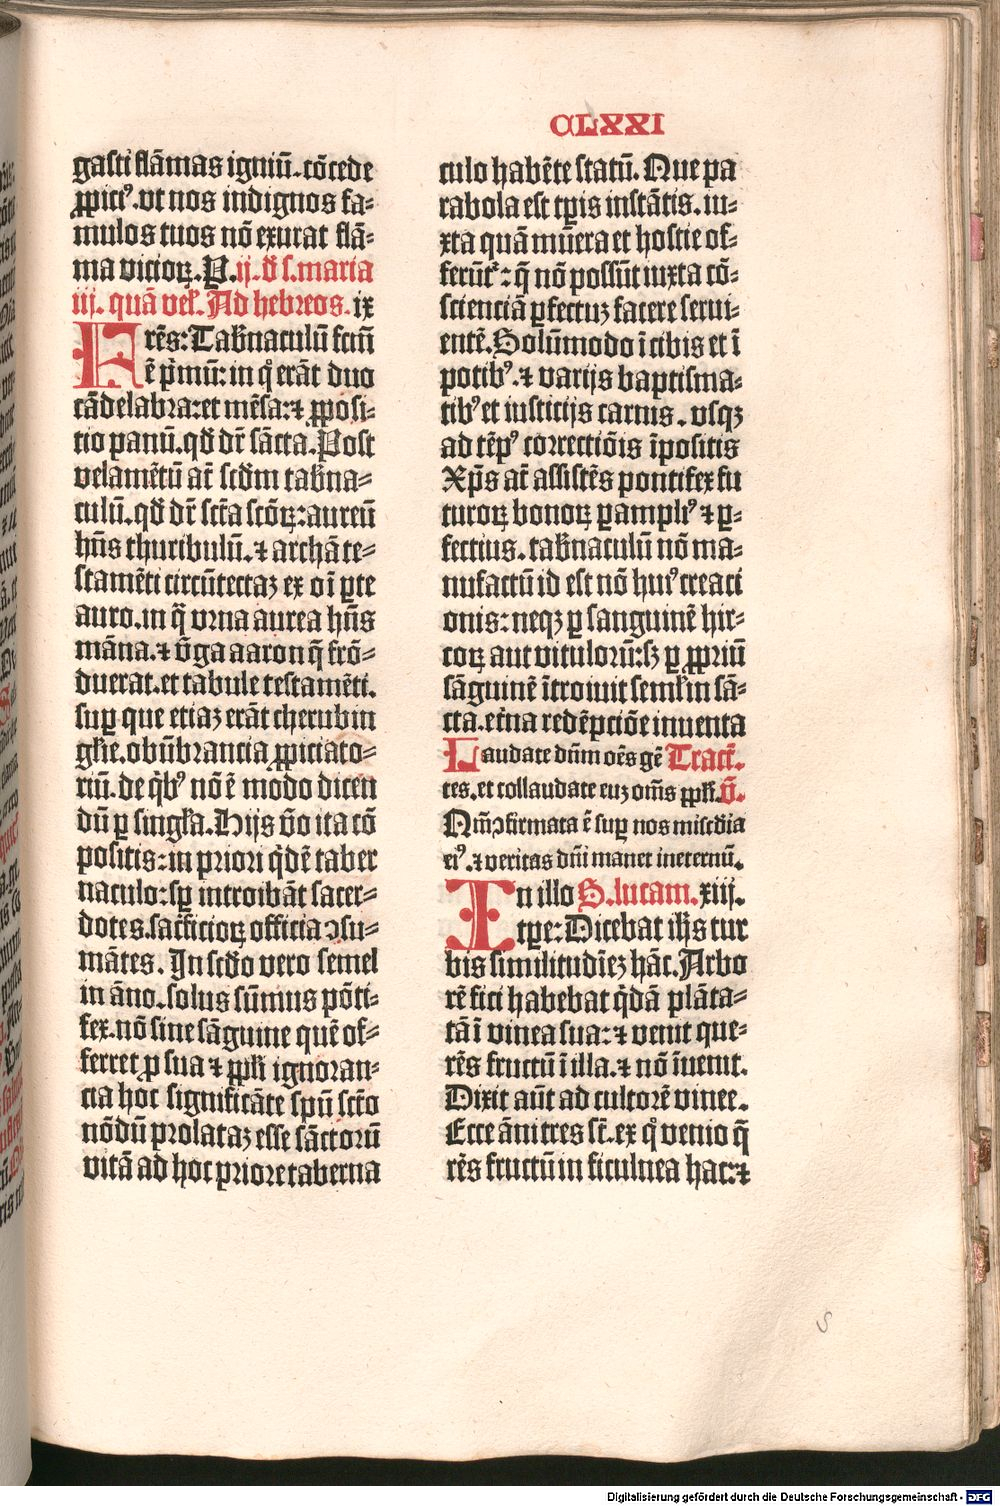 CLXXI
gasti flãmas igniũ. cõcede
ꝓpiciꝰ. vt nos indignos fa⸗
mulos tuos nõ exurat flã⸗
ma vicioꝝ. P. ij. đ s. maria
iij. quã vel'. Ad hebreos. ix
Frẽs: Tab'naculũ fcm̃
ẽ p̃mũ: in q̊ erãt duo
cãdelabra: et mẽsa: ⁊ ꝓposi⸗
tio panũ. qđ dr̃ sãcta. Post
velamẽtũ at̃ scđm tab'na⸗
culũ. qđ dr̃ sctã scõꝝ: aureũ
hñs thuribulũ. ⁊ archã te⸗
stamẽti circũtectaꝫ ex oĩ ꝑte
auro. in q̃ vrna aurea hñs
mãna. ⁊ ṽga aaron q̃ frõ⸗
duerat. et tabule testamẽti.
suꝑ que etiaꝫ erãt cherubin
gl'ie. obũbrancia ꝓpiciato⸗
riũ. de qꝰbꝰ nõ ẽ modo dicen
dũ ꝑ singl'a. Hijs ṽo ita cõ
positis: in priori qͥdẽ taber
naculo: sꝑ introibãt sacer⸗
dotes. sac̃ficioꝝ officia ↄsu⸗
mãtes. In scđo vero semel
in ãno. solus sũmus põti⸗
fex. nõ sine sãguine quẽ of⸗
ferret ꝓ sua ⁊ ꝓpl'i ignoran⸗
cia hoc significãte spũ sctõ
nõdũ prolataꝫ esse sãctorũ
vitã ad hoc priore taberna
culo habẽte statũ. Que pa
rabola est tꝑis instãtis. iu⸗
xta quã mũera et hostie of⸗
ferũt᷑: q̃ nõ possũt iuxta cõ⸗
scienciã ꝑfectuꝫ facere serui⸗
entẽ. Solũmodo ĩ cibis et ĩ
potibꝰ. ⁊ varijs baptisma⸗
tibꝰ et iusticijs carnis. vsqꝫ
ad tẽpꝰ correctiõis ĩpositis
Xp̃s at̃ assistẽs pontifex fu
turoꝝ bonoꝝ ꝑ ampliꝰ ⁊ ꝑ⸗
fectius. tab'naculũ nõ ma⸗
nufactũ id est nõ huiꝰ creaci
onis: neqꝫ ꝑ sanguinẽ hir⸗
coꝝ aut vitulorũ: sꝫ ꝑ ꝓpriũ
sãguinẽ ĩtroiuit seml' in sã⸗
cta. et̃na redẽpciõe inuenta
Laudate dñm oẽs gẽ Tract̃.
tes. et collaudate euꝫ om̃s ꝓpl'i. ṽ.
Qm̃ ↄfirmata ẽ suꝑ nos misc̃dia
eiꝰ. ⁊ veritas dñi manet ineternũ.
In illo S. lucam. xiij.
tꝑe: Dicebat ih̃s tur
bis similitudĩeꝫ hãc. Arbo
rẽ fici habebat qͥdã plãta⸗
tã ĩ vinea sua: ⁊ venit que⸗
rẽs fructũ ĩ illa. ⁊ nõ ĩuenit.
Dixit aũt ad cultorẽ vinee.
Ecce ãni tres st̃. ex q̊ venio q̃
rẽs fructũ in ficulnea hac: ⁊
S
Digitalisierung gefördert durch die Deutsche Forschungsgemeinschaft - DFG